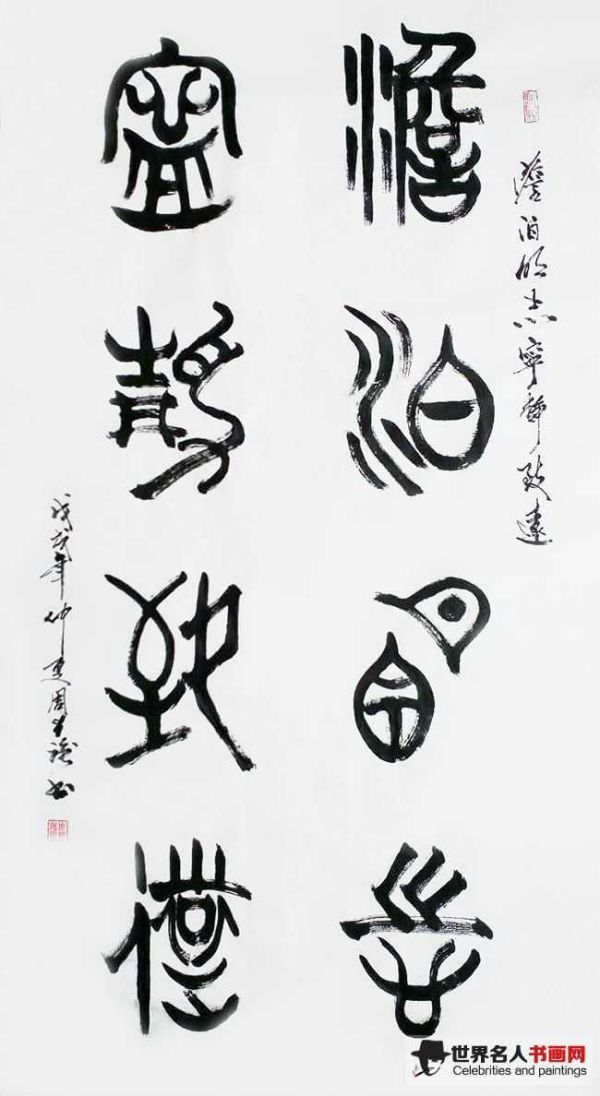 澹泊明志寧静致遠
澹泊明志
寧静致遠
戊戌年仲夏周書
世界名人书画网
Celebrities and paintings